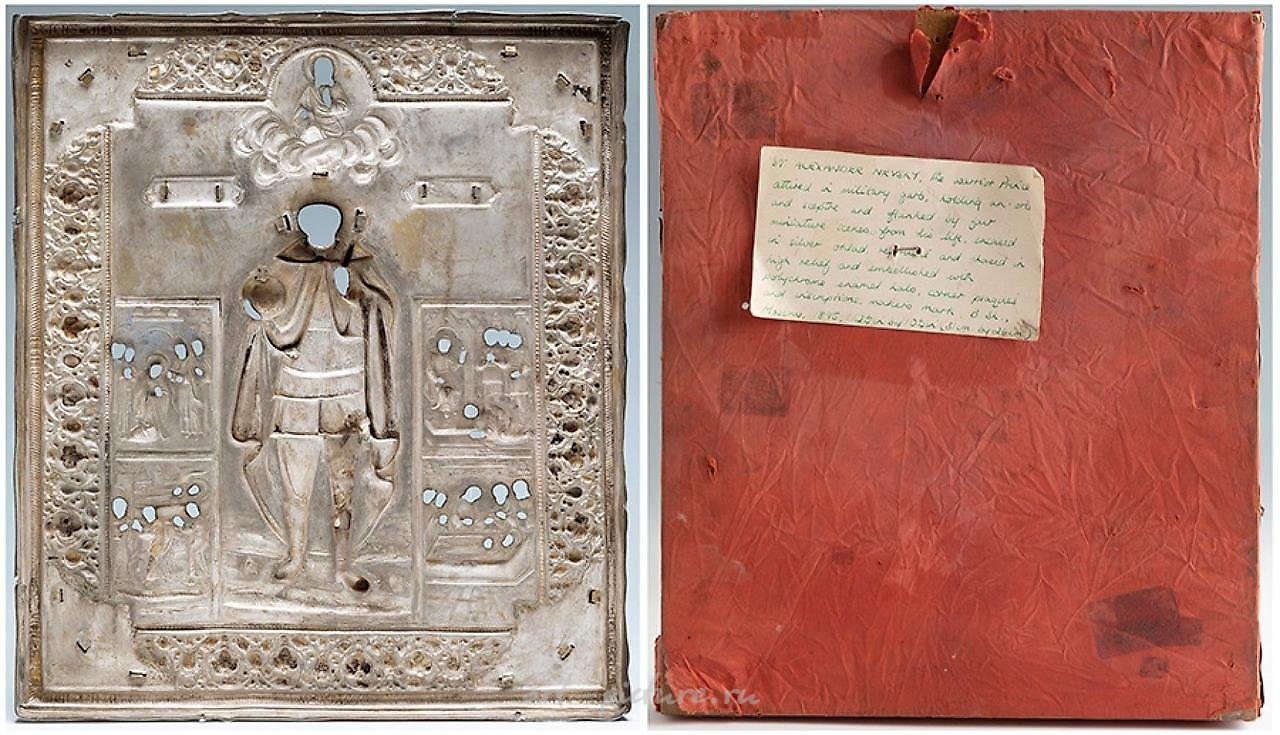 ST ALEXANDER NEVSKY, The warrior Prince
attired in military garb, holding an orb
and sceptre and flanked by four
miniature scenes from his life, encased
in silver oklad, and chased in
high relief and embellished with
polychrome enamel halo, corner plaques
and inscriptions, makers mark
Moscow, 1895,
picture.ru